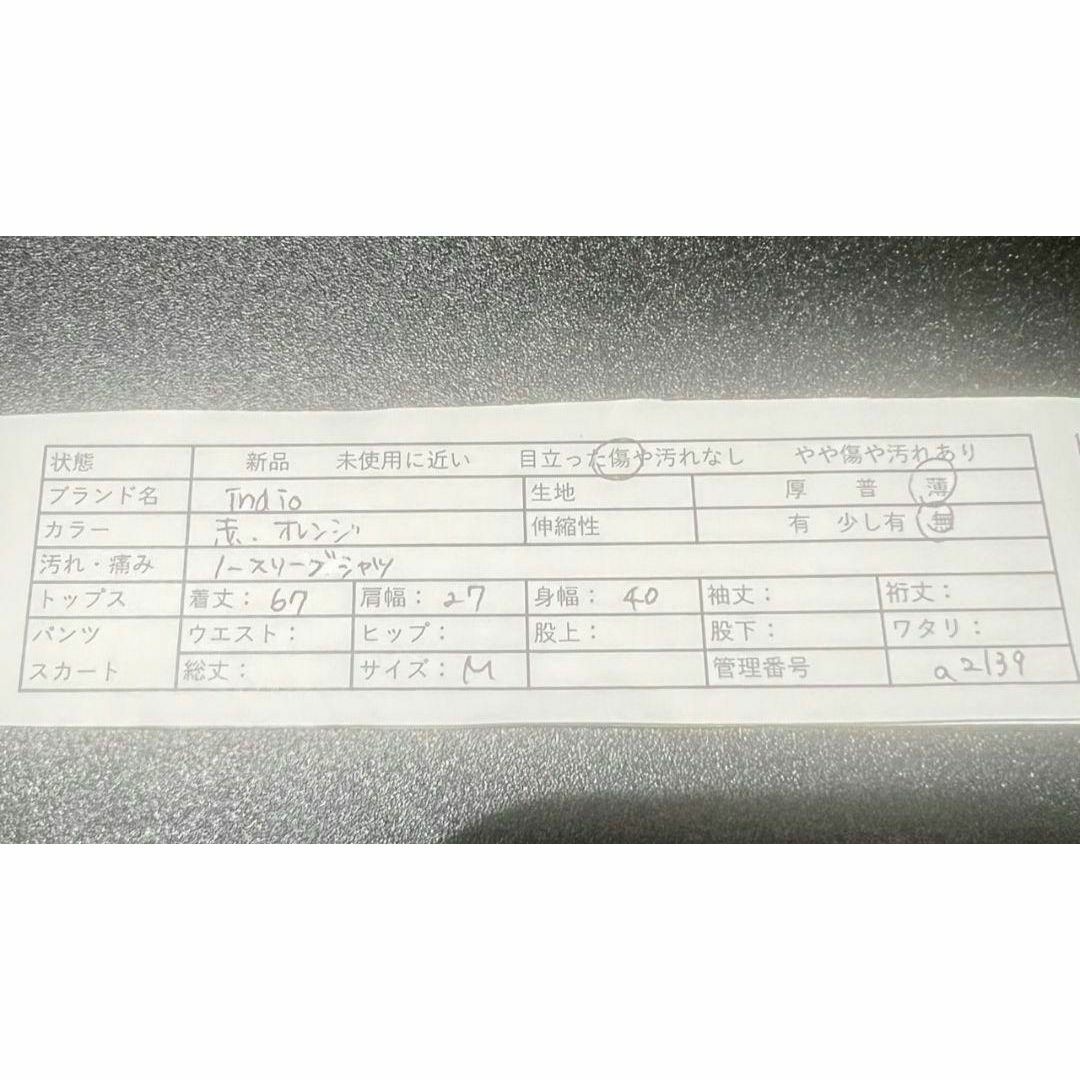 状態 新品 未使用に近い 目立った傷や汚れなし やや傷や汚れあり
ブランド名 indio 生地 厚 普 薄
カラー 赤、オレンジ 伸縮性 有 少し有 無
汚れ・痛み ノースリーブシャツ
トップス 着丈：67 肩幅：27 身幅：40 袖丈： 裄丈：
パンツ ウエスト： ヒップ： 股上： 股下： ワタリ：
スカート 総丈： サイズ：M 管理番号 a2139